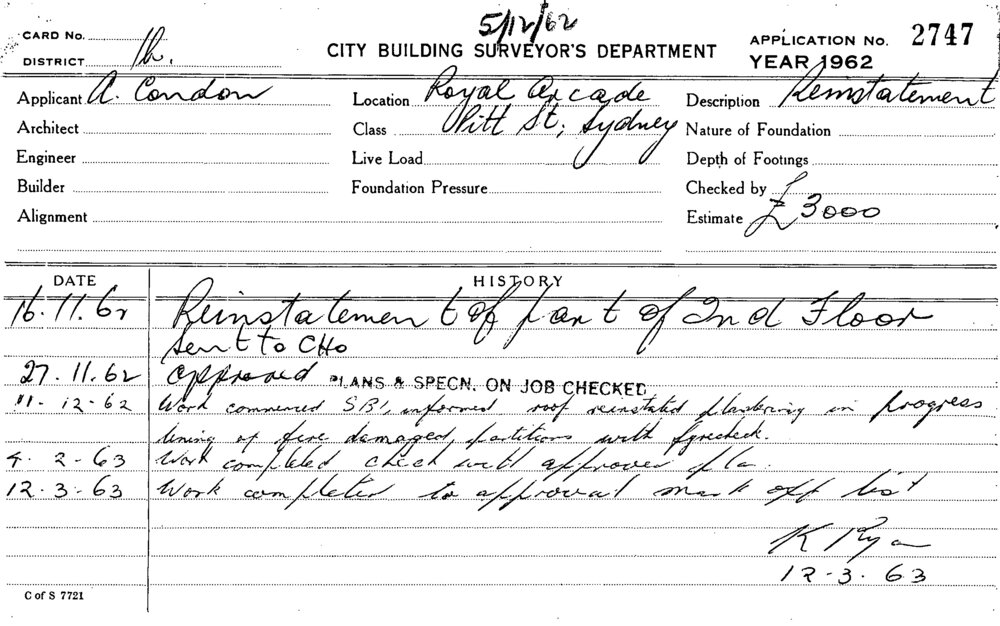 5/12/62
CARD No.
CITY BUILDING SURVEYOR'S DEPARTMENT
APPLICATION No. 2747
DISTRICT
YEAR 1962
Applicant A. Condon
Location Royal Arcade
Description Reinstatement
Architect
Class Pitt St; Sydney
Nature of Foundation
Engineer
Live Load
Depth of Footings
Builder
Foundation Pressure
Checked by
Alignment
Estimate £3000
DATE
HISTORY
16.11.62 Reinstatement of part of 2nd Floor
sent to CHO
27.11.62 approved PLANS & SPECN. ON JOB CHECKED
11-12-62 Work commenced informed roof reinstated plastering in progress
lining of fire damaged, partitions with fyrecheck.
4.2-63 Work completed check with approved
12.3.63 Work completed to approval mark off list
K Ryan
12-3.63
C of S 7721